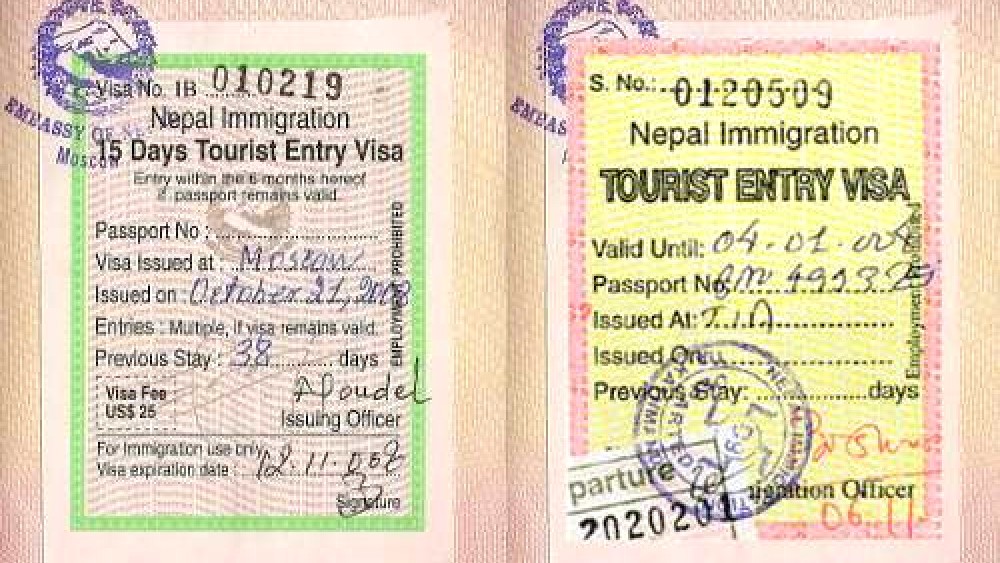 EMBASSY OF NE
Moscow
Visa No. IB 010219
Nepal Immigration
15 Days Tourist Entry Visa
Entry within the 6 months hereof
if passport remains valid.
Passport No :
Visa Issued at : Moscow
Issued on : October 21, 2008
Entries : Multiple, if visa remains valid.
Previous Stay : 38 days
EMPLOYMENT PROHIBITED
Visa Fee
US$ 25
Poudel
Issuing Officer
For Immigration use only
Visa expiration date :
Signature
EMBAS
S. No.: 0120509
Nepal Immigration
TOURIST ENTRY VISA
Valid Until: 04-01-
Passport No.
Issued At: T.I.A
Issued On:
Previous Stay: days
Employment Prohibited
parture
2020201
Officer